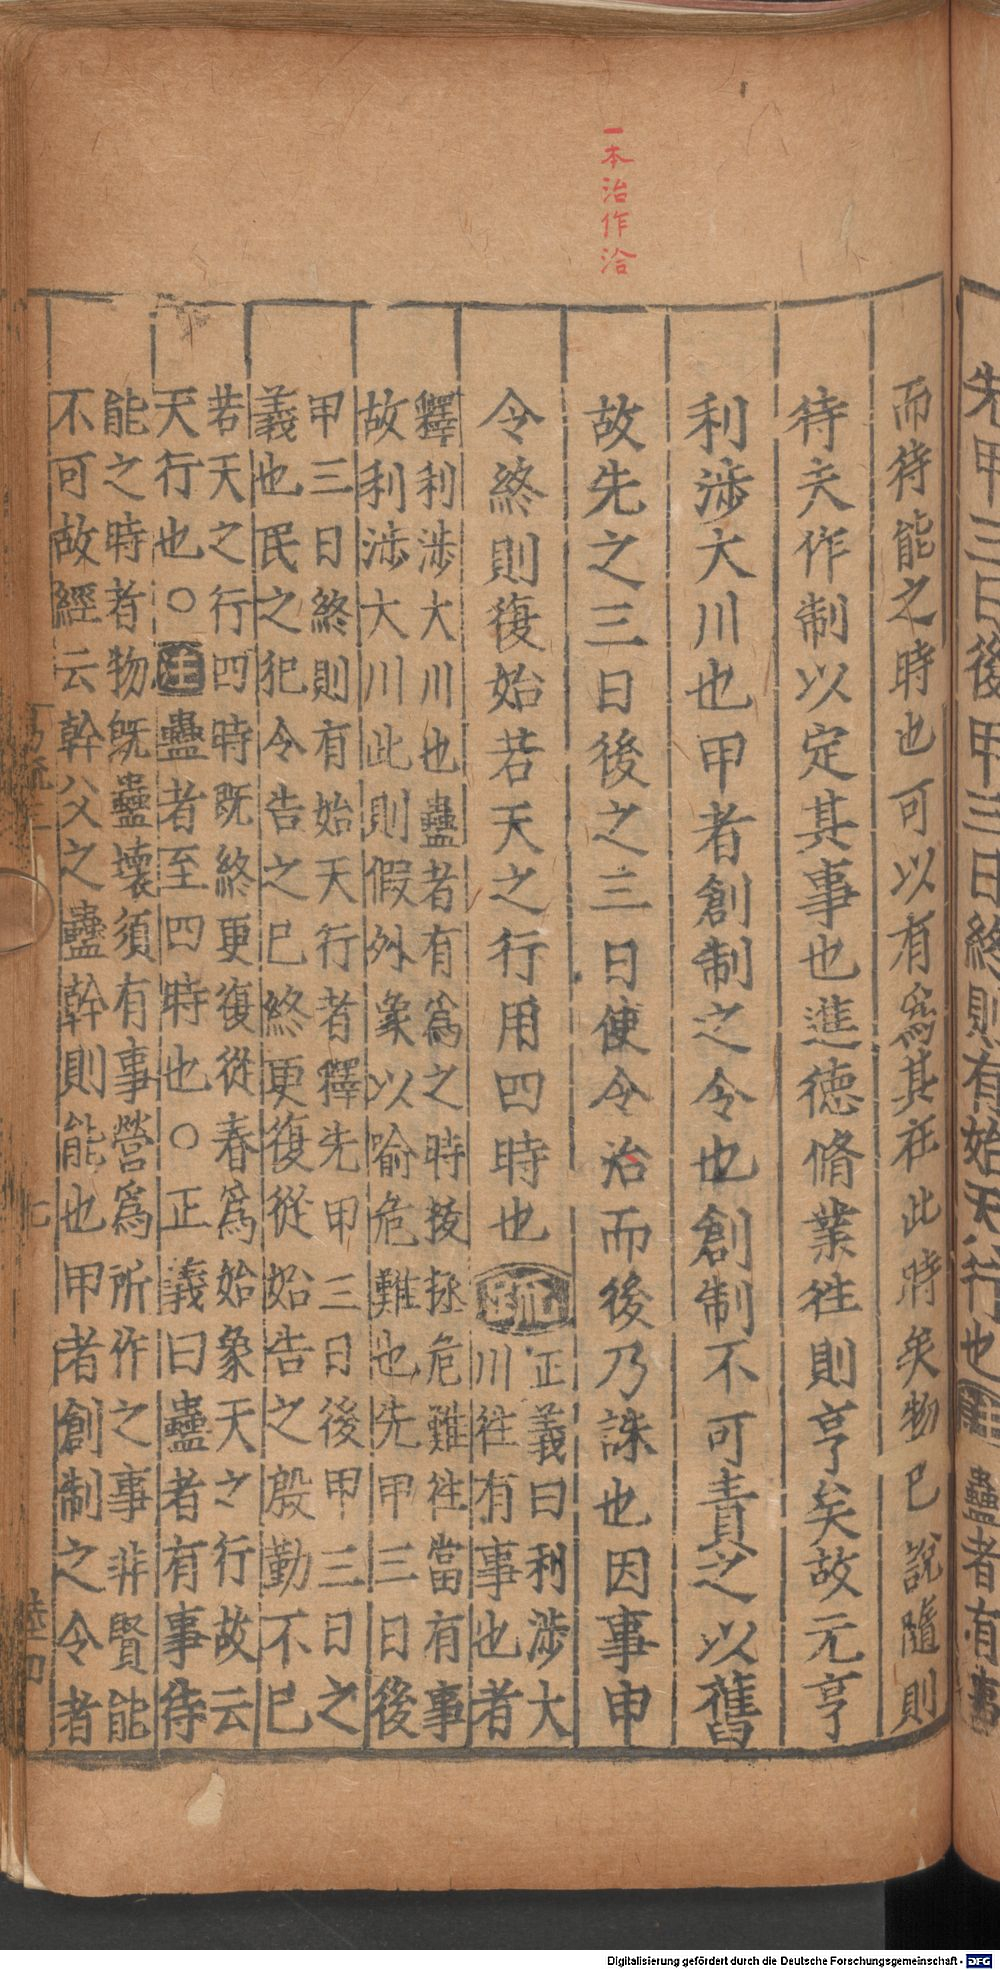 一本治作洽
先甲三日後甲三日終則有始天行也注蠱者有事
而待能之時也可以有爲其在此時矣物已說隨則
待夫作制以定其事也進德脩業往則亨矣故元亨
利涉大川也甲者創制之令也創制不可責之以舊
故先之三日後之三日使令治而後乃誅也因事申
令終則復始若天之行用四時也疏
正義曰利涉大
川往有事也者
釋利涉大川也蠱者有爲之時拔拯危難往當有事
故利涉大川此則假外象以喻危難也先甲三日後
甲三日終則有始天行者釋先甲三日後甲三日之
義也民之犯令告之已終更復從始告之殷勤不已
若天之行四時既終更復從春爲始象天之行故云
天行也○注蠱者至四時也○正義曰蠱者有事待
能之時者物既蠱壞須有事營爲所作之事非賢能
不可故經云幹父之蠱幹則能也甲者創制之令者
Digitalisierung gefördert durch die Deutsche Forschungsgemeinschaft - DFG